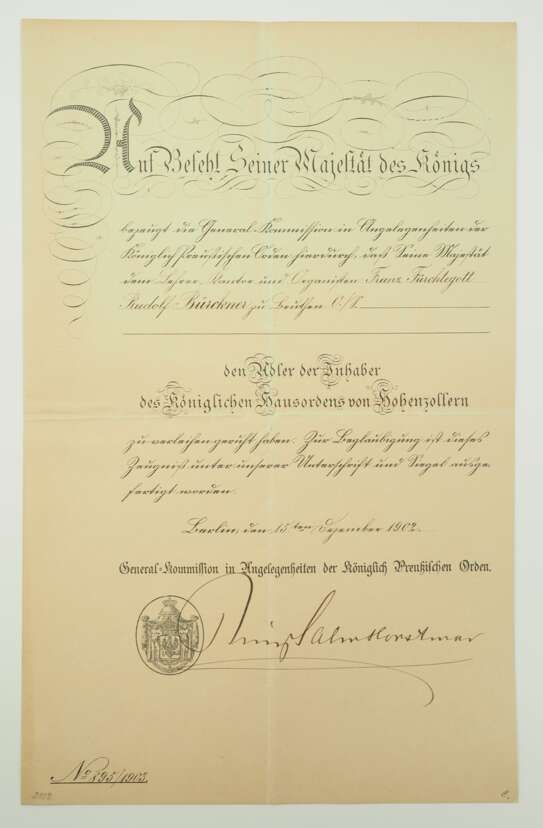 Auf Befehl Seiner Majestät des Königs
bezeugt die General-Kommission in Angelegenheiten der
Königlich Preußischen Orden hierdurch, daß Seine Majestät
dem Lehrer, Kantor und Organisten Franz Fürchtegott
Rudolf Bürckner zu Beuthen O/S.
den Adler der Inhaber
des Königlichen Hausordens von Hohenzollern
zu verleihen geruht haben. Zur Beglaubigung ist dieses
Zeugniß unter unserer Unterschrift und Siegel ausge-
fertigt worden.
Berlin, den 15ten Dezember 1902.
General-Kommission in Angelegenheiten der Königlich Preußischen Orden.
Salm Horstmar
No 895/1903.